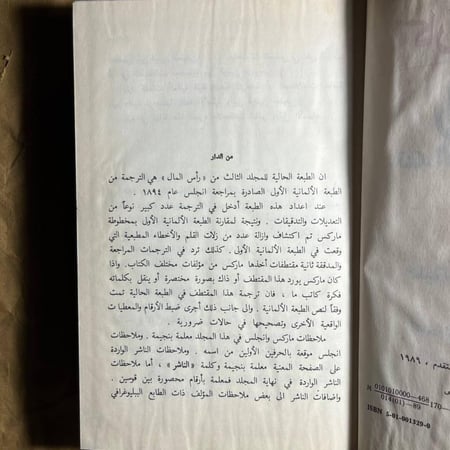 من الدار
ان الطبعة الحالية للمجلد الثالث من « رأس المال » هي الترجمة من
الطبعة الألمانية الأولى الصادرة بمراجعة انجلس عام ١٨٩٤ .
عند اعداد هذه الطبعة أدخل في الترجمة عدد كبير نوعاً من
التعديلات والتدقيقات . ونتيجة لمقارنة الطبعة الألمانية الأولى بمخطوطة
ماركس تم اكتشاف وازالة عدد من زلات القلم والأخطاء المطبعية التي
وقعت في الطبعة الألمانية الأولى . كذلك ترد في الترجمات المراجعة
والمدققة ثانية مقتطفات أخذها ماركس من مؤلفات مختلف الكتاب. واذا
كان ماركس يورد هذا المقتطف أو ذاك بصورة مختصرة أو ينقل بكلماته
فكرة كاتب ما ، فان ترجمة هذا المقتطف في الطبعة الحالية تمت
وفقاً لنص الطبعة الألمانية . والى جانب ذلك أجرى ضبط الأرقام والمعطيات
الواقعية الأخرى وتصحيحها في حالات ضرورية .
ملاحظات ماركس وانجلس في هذا المجلد معلمة بنجيمة . وملاحظات
انجلس موقعة بالحرفين الأولين من اسمه . وملاحظات الناشر الواردة
على الصفحة المعنية معلمة بنجيمة وكلمة « الناشر » ، أما ملاحظات
الناشر الواردة في نهاية المجلد فمعلمة بأرقام محصورة بين قوسين .
واضافات الناشر الى بعض ملاحظات المؤلف ذات الطابع الببليوغرافي
تقدم ، ١٩٨٦
0101010000—468
014(01)—89
170—
ISBN 5-01-001329-0